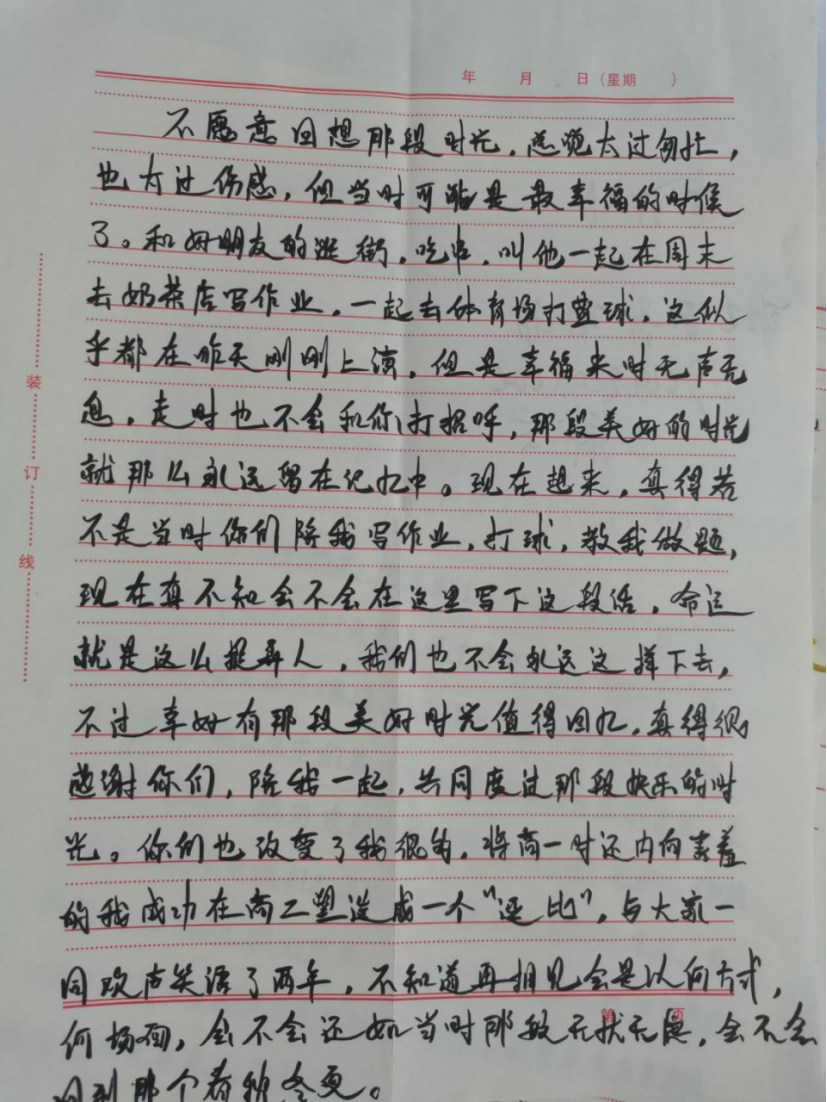 年 月 日(星期 )
不愿意回想那段时光,总觉太过匆忙,
也太过伤感,但当时可能是最幸福的时候
了。和好朋友的逛街,吃串,叫他一起在周末
去奶茶店写作业,一起去体育场打篮球,这似
乎都在昨天刚刚上演,但是幸福来时无声无
息,走时也不会和你打招呼,那段美好的时光
就那么永远留在记忆中。现在想起来,真得若
不是当时你们陪我写作业,打球,教我做题,
现在真不知会不会在这里写下这段话,命运
就是这么捉弄人,我们也不会永远这样下去,
不过幸好有那段美好时光值得回忆,真得很
感谢你们,陪我一起,共同度过那段快乐的时
光。你们也改变了我很多,将高一时还内向害羞
的我成功在高二塑造成一个"逗比",与大家一
同欢声笑语了两年,不知道再相见会是以何方式,
何场面,会不会还如当时那般无忧无虑,会不会
回到那个春秋冬夏。
装
订
线
第 页